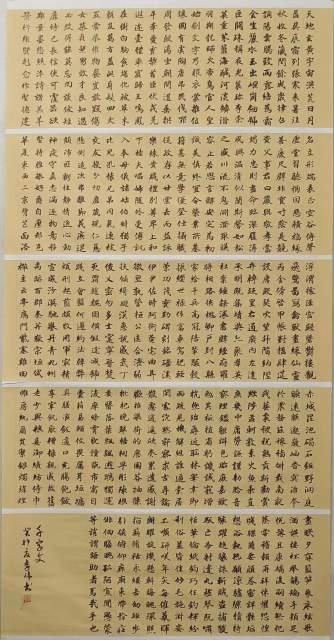 天地玄黃宇宙洪荒日月
盈昃辰宿列張寒來暑往
秋收冬藏閏餘成歲律呂
調陽雲騰致雨露結為霜
金生麗水玉出崑岡劍號
巨闕珠稱夜光果珍李柰
菜重芥薑海鹹河淡鱗潛
羽翔龍師火帝鳥官人皇
始制文字乃服衣裳推位
讓國有虞陶唐弔民伐罪
周發殷湯坐朝問道垂拱
平章愛育黎首臣伏戎羌
遐邇壹體率賓歸王鳴鳳
在竹白駒食場化被草木
賴及萬方蓋此身髮四大
五常恭惟鞠養豈敢毀傷
女慕貞潔男效才良知過
必改得能莫忘罔談彼短
靡恃己長信使可覆器欲
難量墨悲絲染詩讚羔羊
景行維賢克念作聖德建
名立形端表正空谷傳聲
虛堂習聽禍因惡積福緣
善慶尺璧非寶寸陰是競
資父事君曰嚴與敬孝當
竭力忠則盡命臨深履薄
夙興溫凊似蘭斯馨如松
之盛川流不息淵澄取映
容止若思言辭安定篤初
誠美慎終宜令榮業所基
籍甚無竟學優登仕攝職
從政存以甘棠去而益詠
樂殊貴賤禮別尊卑上和
下睦夫唱婦隨外受傅訓
入奉母儀諸姑伯叔猶子
比兒孔懷兄弟同氣連枝
交友投分切磨箴規仁慈
隱惻造次弗離節義廉退
顛沛匪虧性靜情逸心動
神疲守真志滿逐物意移
堅持雅操好爵自縻都邑
華夏東西二京背芒面洛
浮渭據涇宮殿盤鬱樓觀
飛驚圖寫禽獸畫綵仙靈
丙舍傍啟甲帳對楹肆筵
設席鼓瑟吹笙升階納陛
弁轉疑星右通廣內左達
承明既集墳典亦聚群英
杜稿鍾隸漆書壁經府羅
將相路俠槐卿戶封八縣
家給千兵高冠陪輦驅轂
振纓世祿侈富車駕肥輕
策功茂實勒碑刻銘磻溪
伊尹佐時阿衡奄宅曲阜
微旦孰營桓公匡合濟弱
扶傾綺迴漢惠說感武丁
俊乂密勿多士寔寧晉楚
更霸趙魏困橫假途滅虢
踐土會盟何遵約法韓弊
煩刑起翦頗牧用軍最精
宣威沙漠馳譽丹青九州
禹跡百郡秦并嶽宗恆岱
禪主云亭雁門紫塞雞田
赤城昆池碣石鉅野洞庭
曠遠綿邈巖岫杳冥治本
於農務茲稼穡俶載南畝
我藝黍稷稅熟貢新勸賞
黜陟孟軻敦素史魚秉直
庶幾中庸勞謙謹敕聆音
察理鑑貌辨色貽厥嘉猷
勉其祗植省躬譏誡寵增
抗極殆辱近恥林皋幸即
兩疏見機解組誰逼索居
閒處沉默寂寥求古尋論
散慮逍遙欣奏累遣慼謝
歡招渠荷的歷園莽抽條
枇杷晚翠梧桐早凋陳根
委翳落葉飄颻遊鵾獨運
凌摩絳霄耽讀翫市寓目
囊箱易輶攸畏屬耳垣牆
具膳餐飯適口充腸飽飫
烹宰飢厭糟糠親戚故舊
老少異糧妾御績紡侍巾
帷房紈扇圓潔銀燭煒煌
晝眠夕寐藍筍象床絃歌
酒讌接杯舉觴矯手頓足
悅豫且康嫡後嗣續祭祀
烝嘗稽顙再拜悚懼恐惶
牋牒簡要顧答審詳骸垢
想浴執熱願涼驢騾犢特
駭躍超驤誅斬賊盜捕獲
叛亡布射遼丸嵇琴阮嘯
恬筆倫紙鈞巧任釣釋紛
利俗並皆佳妙毛施淑姿
工顰妍笑年矢每催曦暉
朗曜璇璣懸斡晦魄環照
指薪修祜永綏吉劭矩步
引領俯仰廊廟束帶矜莊
徘徊瞻眺孤陋寡聞愚蒙
等誚謂語助者焉哉乎也
千字文